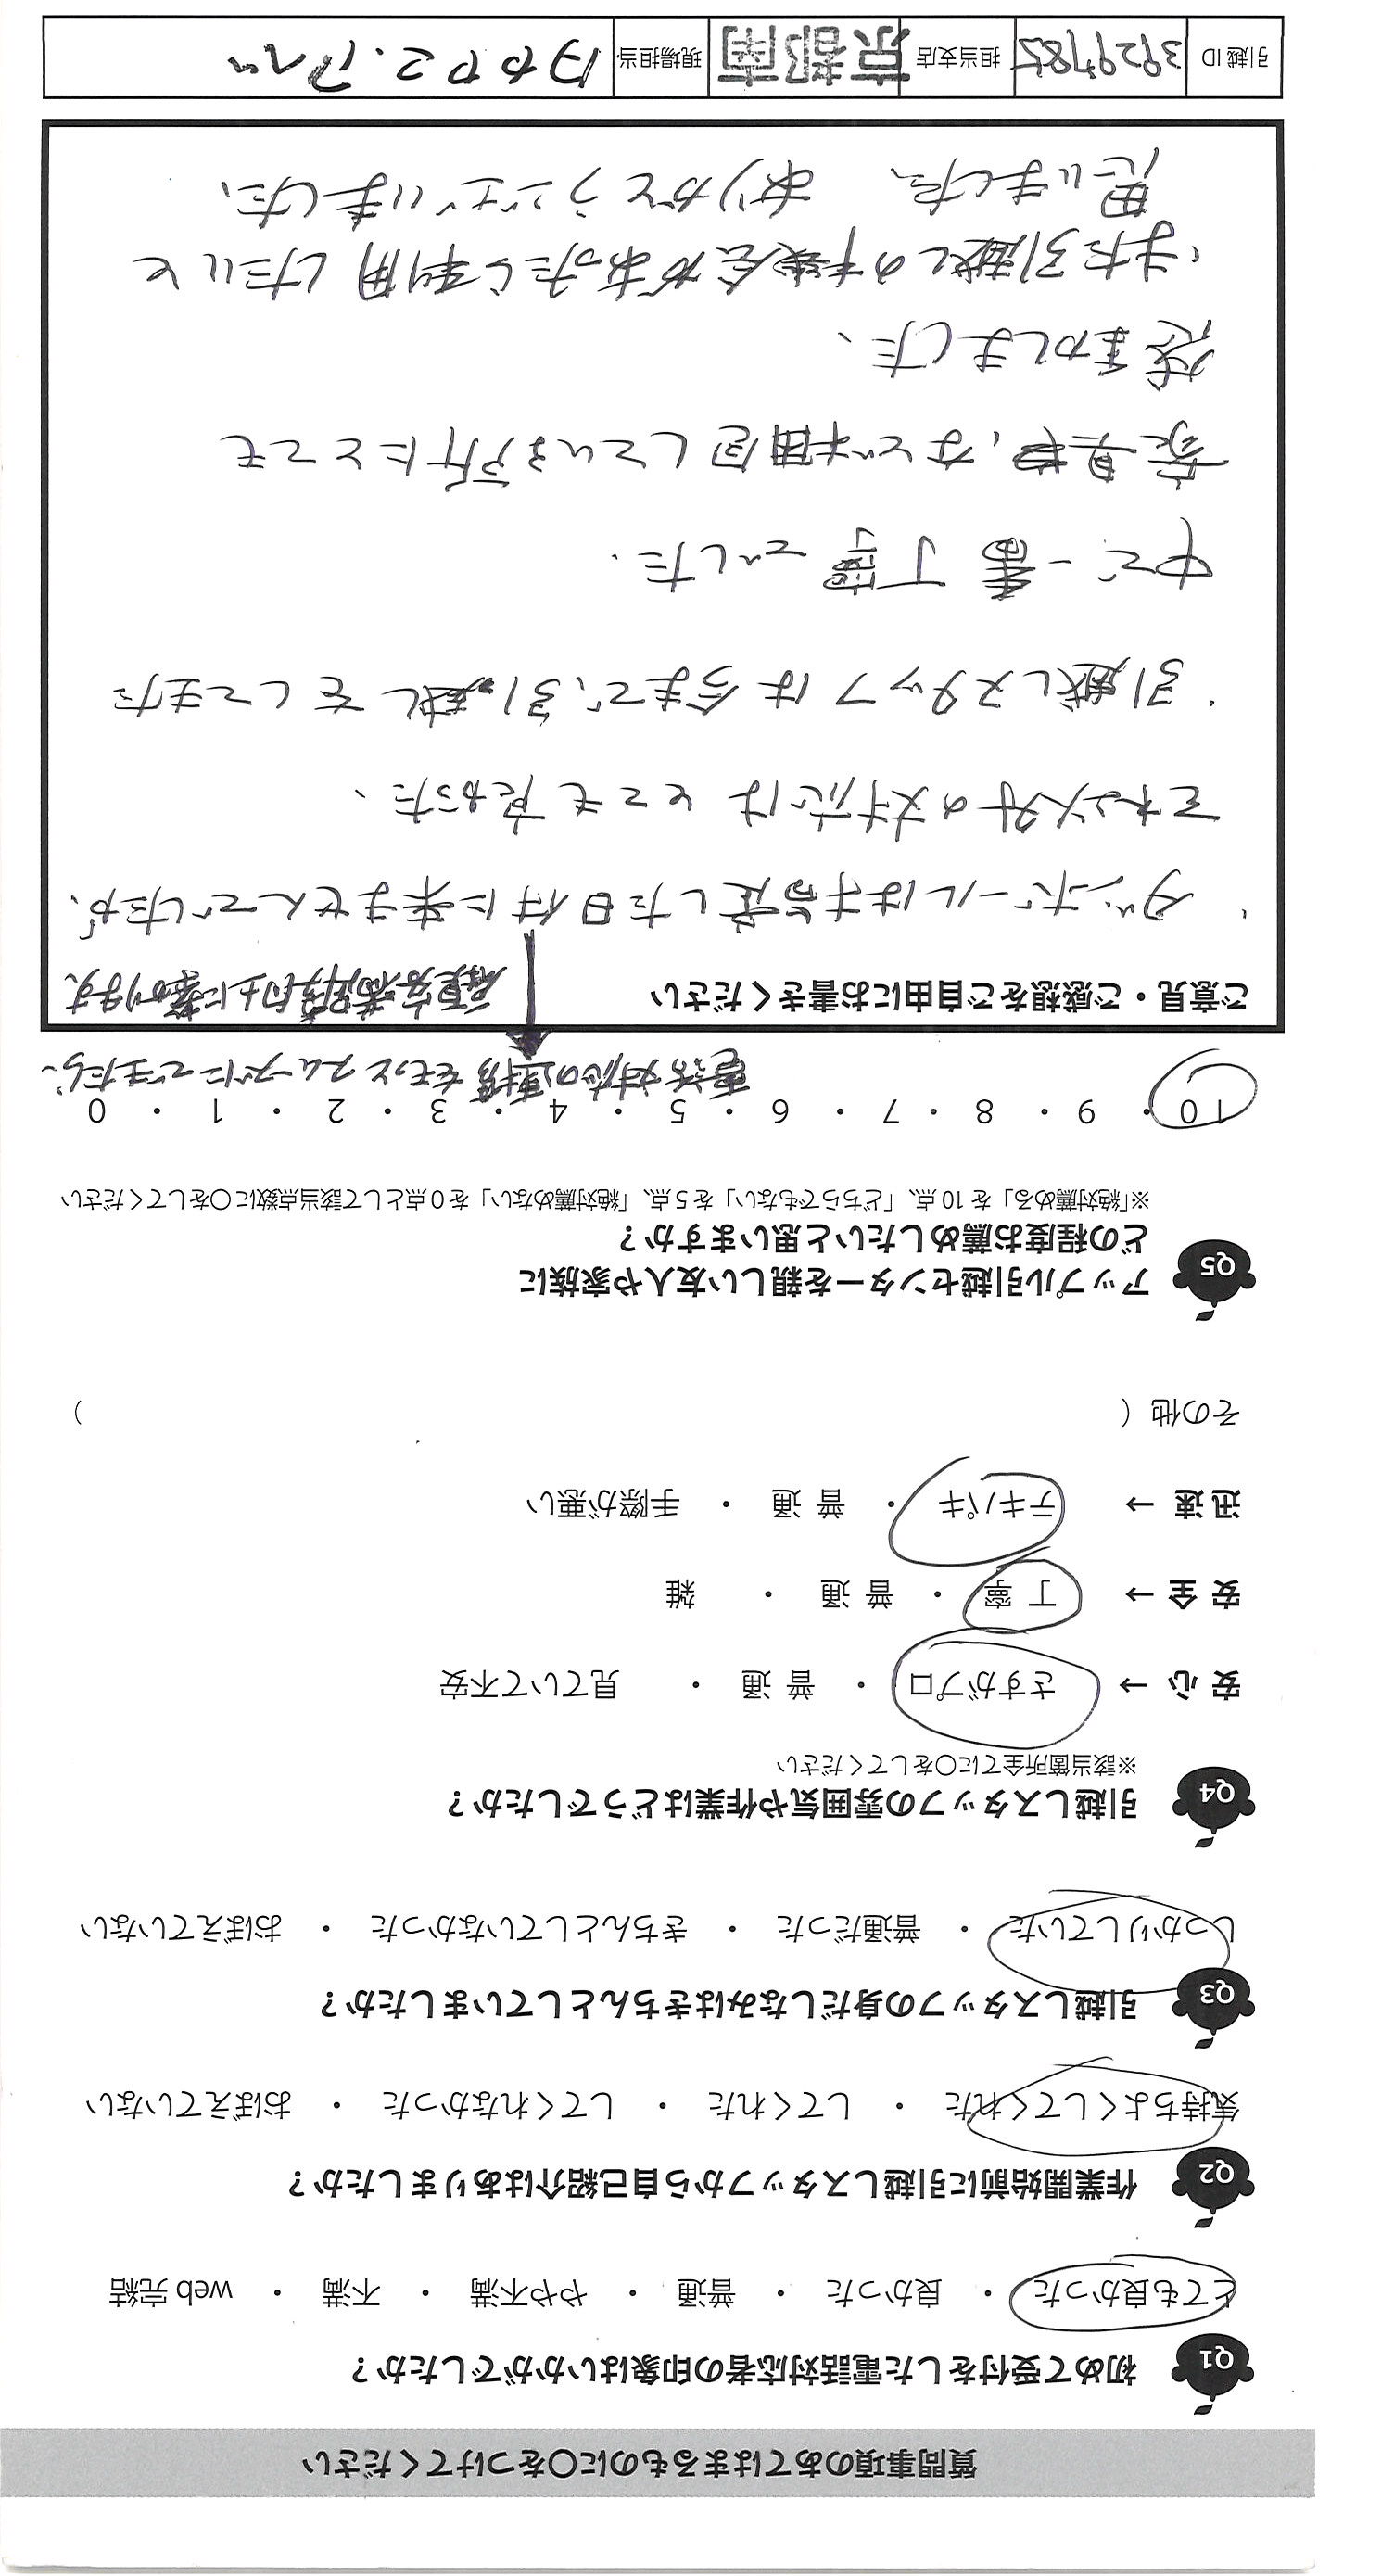 質問事項のあてはまるものに○をつけてください
Q1 初めて受付をした電話対応者の印象はいかがでしたか？
とても良かった ・ 良かった ・ 普通 ・ やや不満 ・ 不満 ・ web 完結
Q2 作業開始前に引越しスタッフから自己紹介はありましたか？
気持ちよくしてくれた ・ してくれた ・ してくれなかった ・ おぼえていない
Q3 引越しスタッフの身だしなみはきちんとしていましたか？
しっかりしていた ・ 普通だった ・ きちんとしていなかった ・ おぼえていない
Q4 引越しスタッフの雰囲気や作業はどうでしたか？
※該当箇所全てに○をしてください
安 心 → さすがプロ ・ 普 通 ・ 見ていて不安
安 全 → 丁 寧 ・ 普 通 ・ 雑
迅 速 → テキパキ ・ 普 通 ・ 手際が悪い
その他（ ）
Q5 アップル引越センターを親しい友人や家族に
どの程度お薦めしたいと思いますか？
※「絶対薦める」を 10 点、「どちらでもない」を 5 点、「絶対薦めない」を 0 点として該当点数に○をしてください
10 ・ 9 ・ 8 ・ 7 ・ 6 ・ 5 ・ 4 ・ 3 ・ 2 ・ 1 ・ 0
電話対応の連携をもっとスムーズにできたら、
ご意見・ご感想をご自由にお書きください
顧客満足度向上に繋がります
・ダンボールは指定した日付に来ませんでしたが、
それ以外の対応はとても良かった、
・引越しスタッフは今まで、引越しをしてきた
中で一番丁寧でした.
家具や、など梱包している所にとても
感まかしました、
・また引越しの機会があったら利用したいと
思いました、 ありがとうございました、
引越 ID 3929785 担当支店 京都南 現場担当